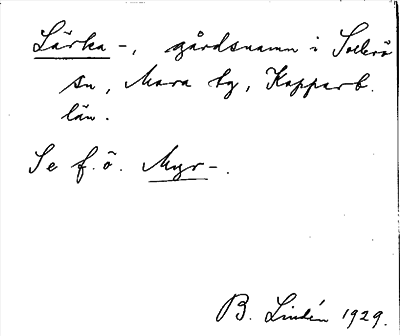 Lärka-, gårdsnamn i Sollerö
sn, Mora tg, Kopparb.
län.
Se f.ö. Myr-.
B. Lindén 1929.